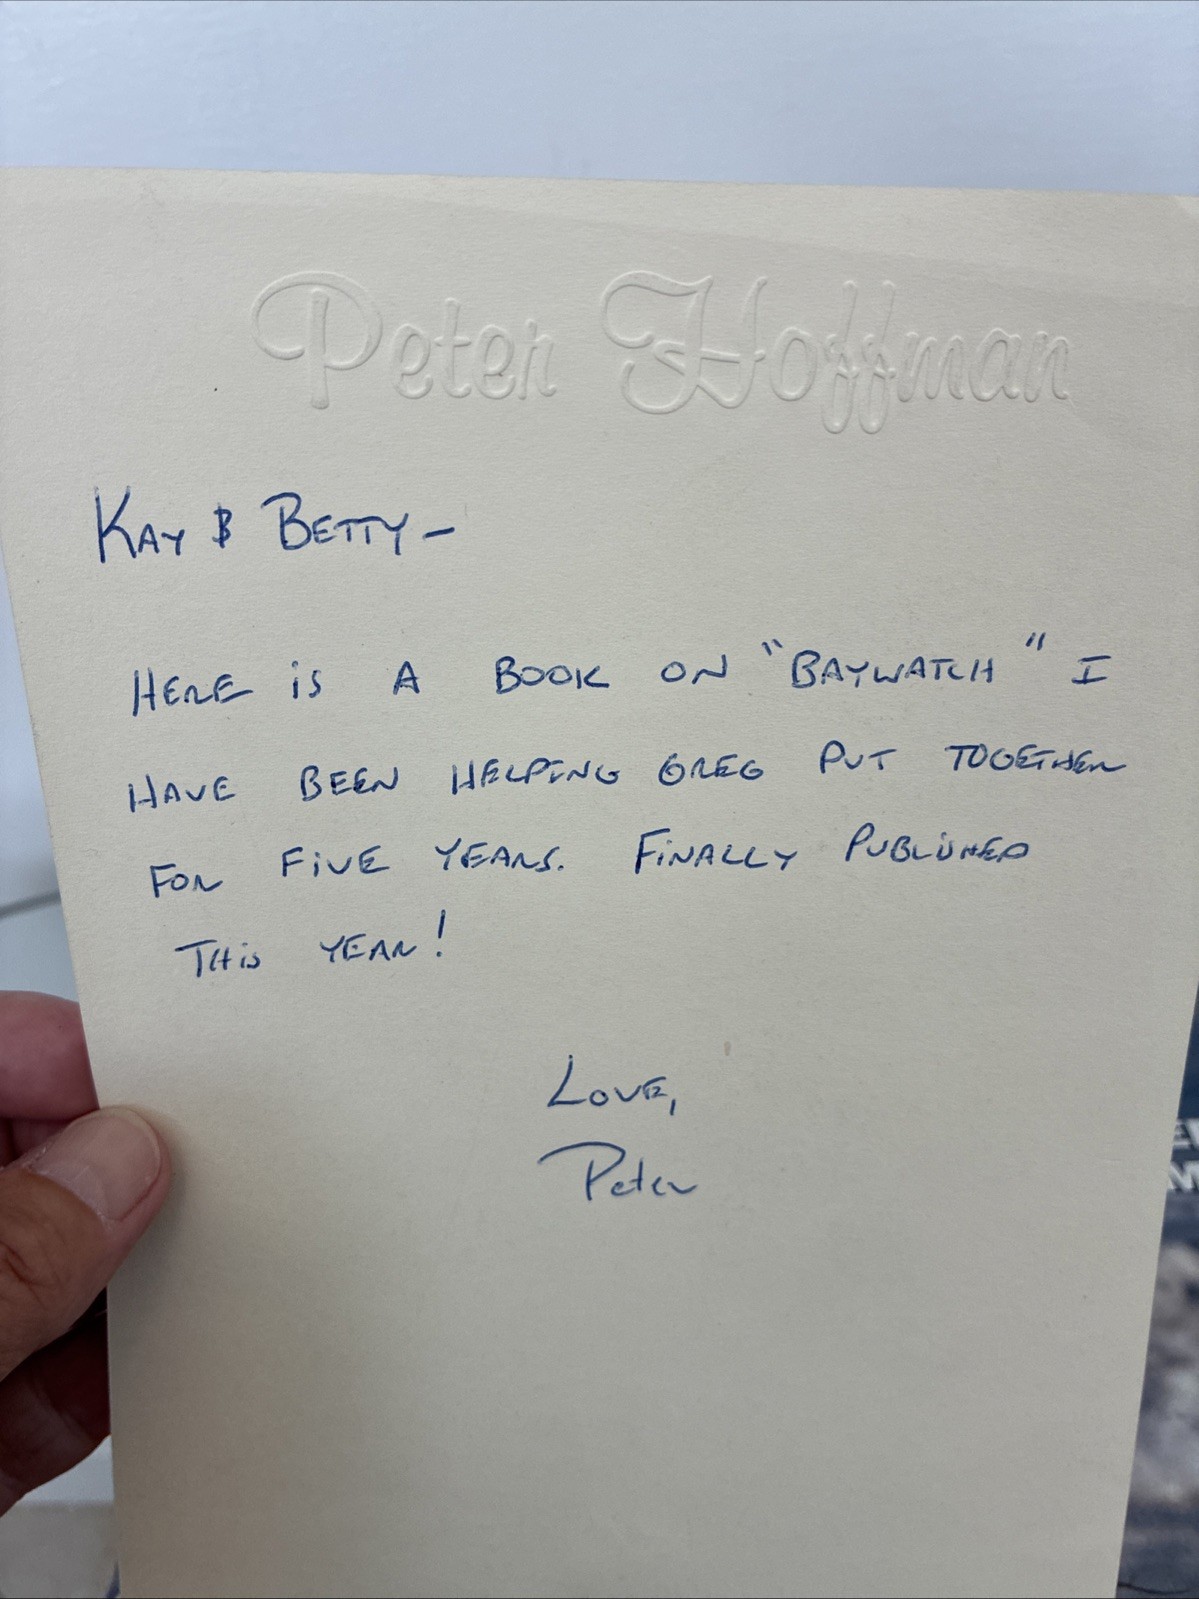 Peter Hoffman
KAY & BETTY –
HERE IS A BOOK ON "BAYWATCH" I
HAVE BEEN HELPING GREG PUT TOGETHER
FOR FIVE YEARS. FINALLY PUBLISHED
THIS YEAR!
LOVE,
Peter